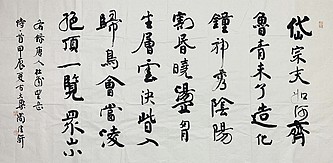 岱宗夫如何齊
魯青未了造化
鐘神秀陰陽
割昏曉盪胷
生層雲決眥入
歸鳥會當凌
絕頂一覽眾山小
右錄唐人杜甫望岳
甲辰夏